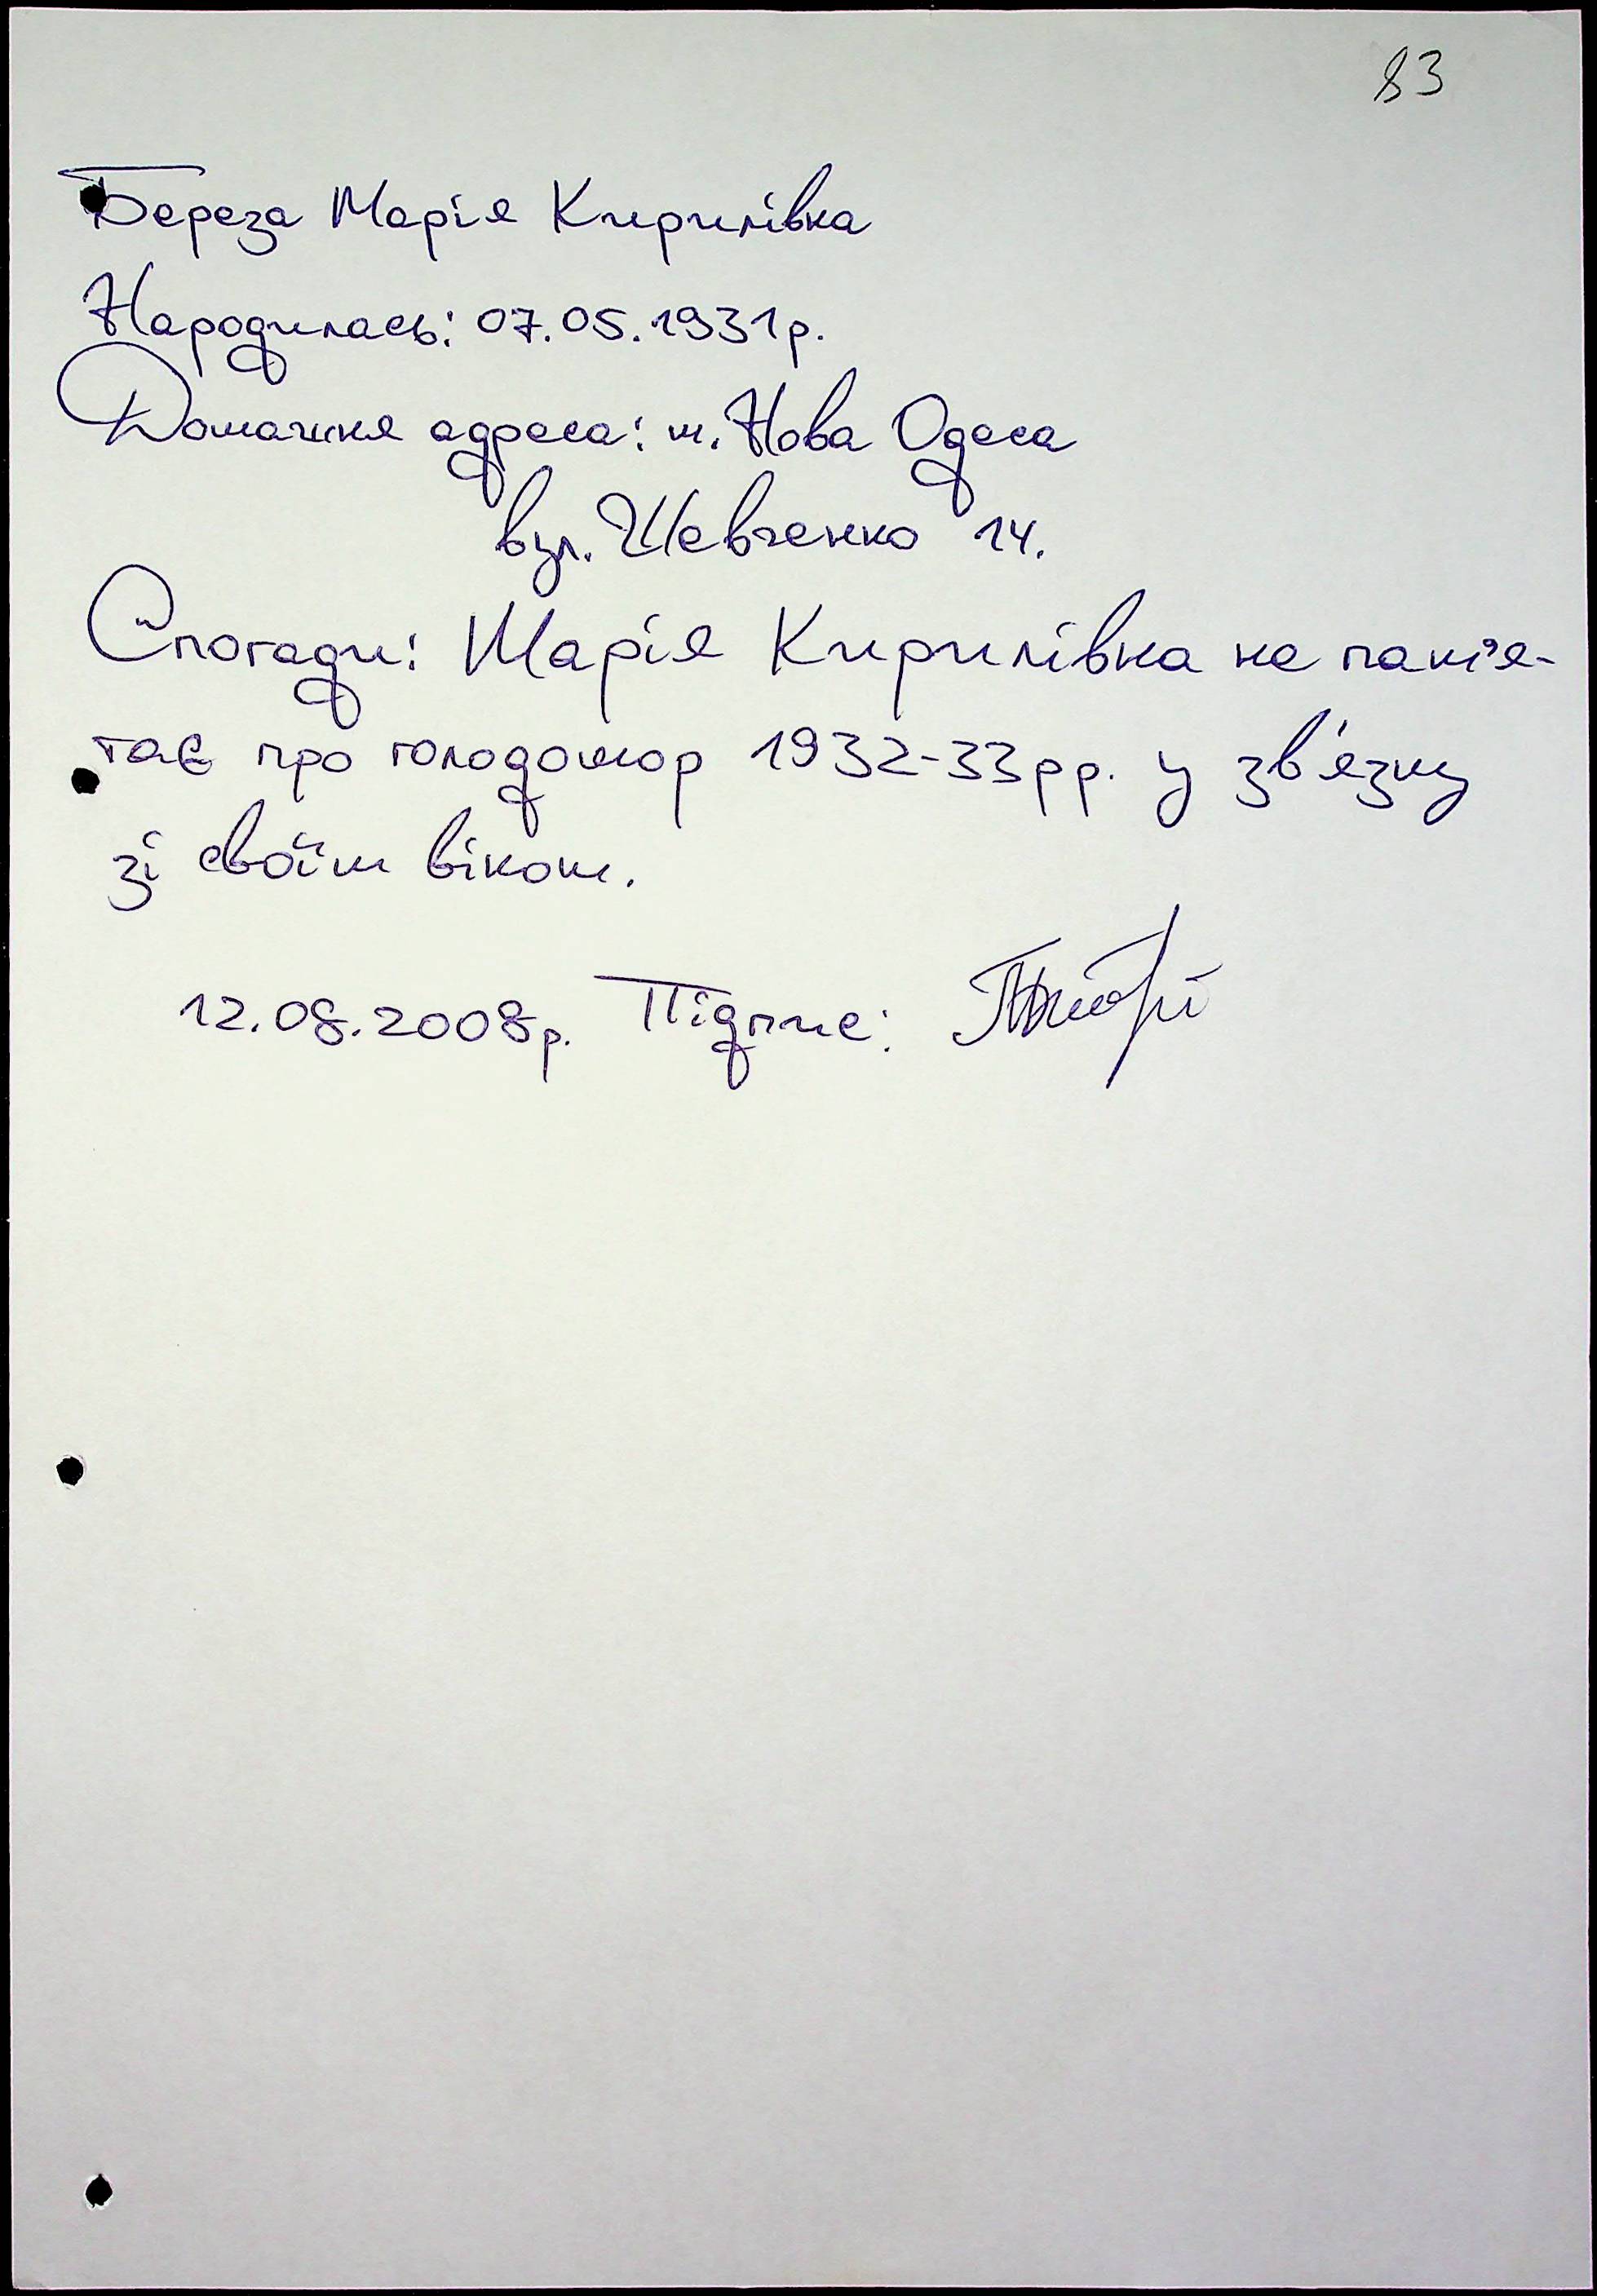 83
Береза Марія Кирилівна
Народилась: 07.05.1931р.
Домашня адреса: м. Нова Одеса
вул. Шевченко 14.
Спогади: Марія Кирилівна не пам'я-
тає про голодомор 1932-33рр. у зв'язку
зі своїм віком.
12.08.2008р. Підпис: